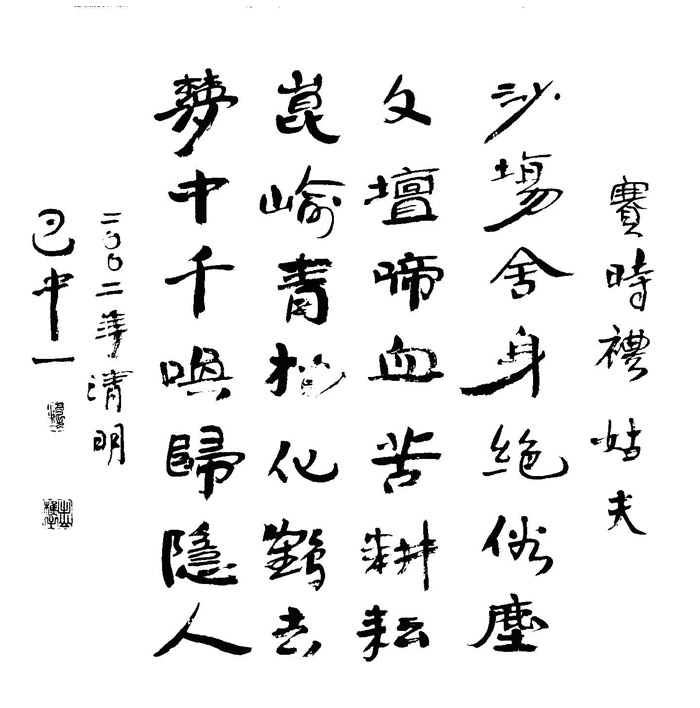 賽時禮姑夫
沙場舍身絶俗塵
文壇啼血苦耕耘
崑崳青松化鶴去
夢中千喚歸隱人
二〇〇二年清明
中一